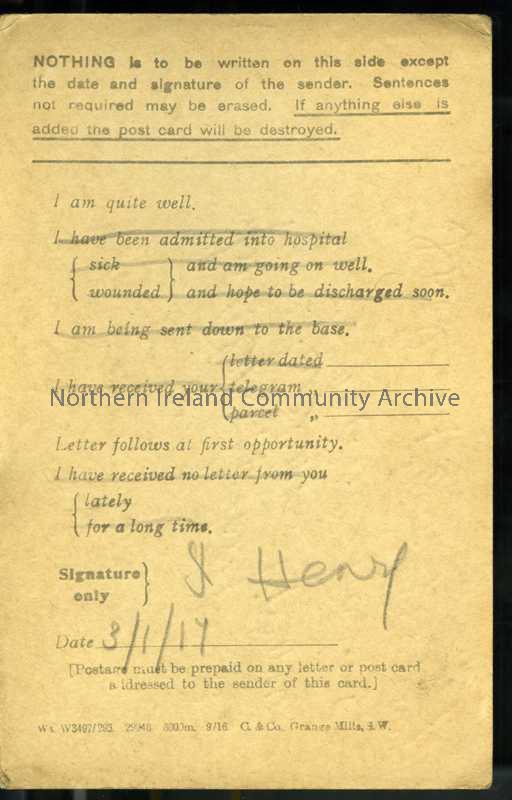 NOTHING is to be written on this side except
the date and signature of the sender. Sentences
not required may be erased. If anything else is
added the post card will be destroyed.
I am quite well.
I have been admitted into hospital
sick and am going on well.
wounded and hope to be discharged soon.
I am being sent down to the base.
letter dated
I have received your telegram „
Northern Ireland Community Archive
parcel „
Letter follows at first opportunity.
I have received no letter from you
lately
for a long time.
Signature only
Henry
Date 3/1/17
[Postage must be prepaid on any letter or post card
addressed to the sender of this card.]
8000m. 9/16 C. & Co. Grange Mills, S.W.